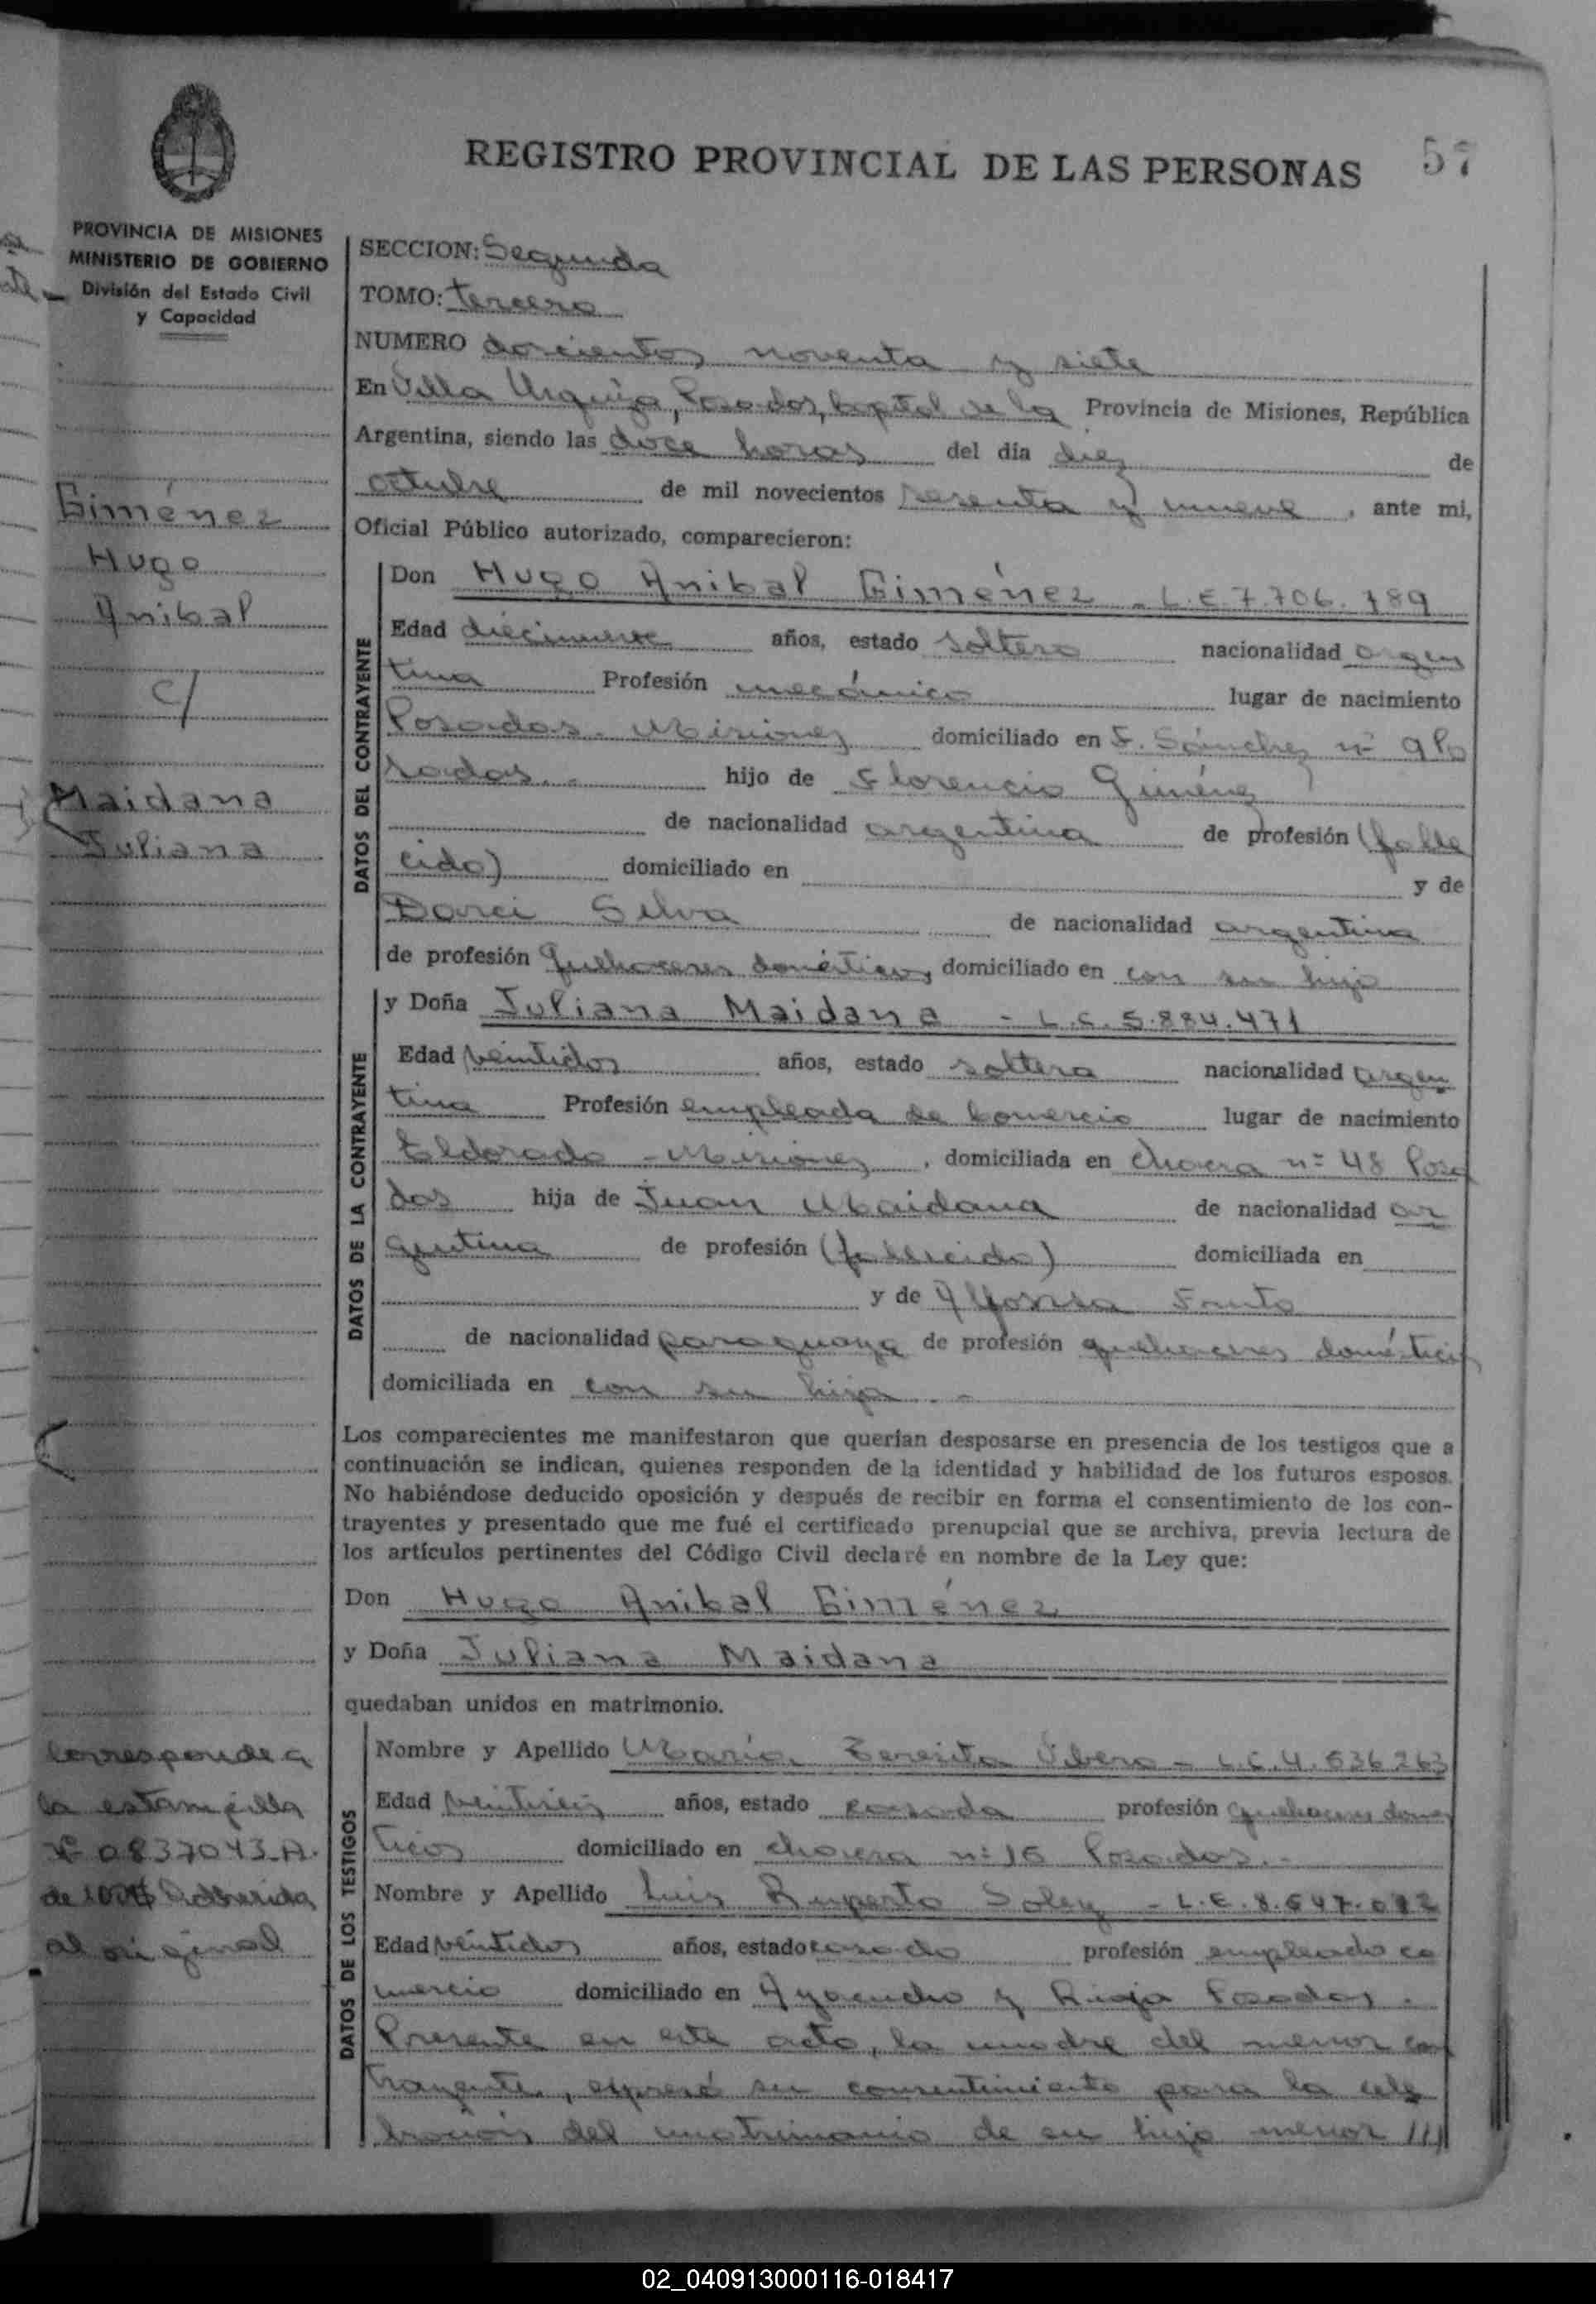 REGISTRO PROVINCIAL DE LAS PERSONAS 57
PROVINCIA DE MISIONES
MINISTERIO DE GOBIERNO
División del Estado Civil
y Capacidad
Giménez
Hugo
Anibal
c/
Maidana
Juliana
Corresponde a
la estampilla
Nº 0837043 A.
de 100$ Adherida
al original
SECCION: Segunda
TOMO: tercero
NUMERO doscientos noventa y siete
En Villa Urquiza, Posadas, Capital de la Provincia de Misiones, República
Argentina, siendo las doce horas del día diez de
octubre de mil novecientos sesenta y nueve, ante mi,
Oficial Público autorizado, comparecieron:
DATOS DEL CONTRAYENTE
Don Hugo Anibal Giménez - L.E. 7.706.789
Edad diecinueve años, estado soltero nacionalidad argen
tina Profesión mecánico lugar de nacimiento
Posadas. Misiones domiciliado en F. Sánchez nº 9 Po
sadas.- hijo de Florencio Giménez
de nacionalidad argentina de profesión (falle
cido) domiciliado en y de
Darci Silva de nacionalidad argentina
de profesión Quehaceres domésticos, domiciliado en con su hijo
DATOS DE LA CONTRAYENTE
y Doña Juliana Maidana - L.C. 5.884.471
Edad veintidos años, estado soltera nacionalidad argen
tina Profesión empleada de Comercio lugar de nacimiento
Eldorado - Misiones, domiciliada en Chacra nº 48 Posa
das hija de Juan Maidana de nacionalidad ar
gentina de profesión (fallecido) domiciliada en
y de Alfonsa Fruto
de nacionalidad paraguaya de profesión quehaceres domésticos
domiciliada en con su hija.-
Los comparecientes me manifestaron que querían desposarse en presencia de los testigos que a
continuación se indican, quienes responden de la identidad y habilidad de los futuros esposos.
No habiéndose deducido oposición y después de recibir en forma el consentimiento de los con-
trayentes y presentado que me fué el certificado prenupcial que se archiva, previa lectura de
los artículos pertinentes del Código Civil declaré en nombre de la Ley que:
Don Hugo Anibal Giménez
y Doña Juliana Maidana
quedaban unidos en matrimonio.
DATOS DE LOS TESTIGOS
Nombre y Apellido María Teresita - L.C. 4.536.263
Edad años, estado casada profesión Quehaceres domés
ticos domiciliado en chacra nº 16 Posadas.-
Nombre y Apellido Luis Ruperto - L.E. 8.547.
Edad veintidos años, estado casado profesión empleado co
mercio domiciliado en Ayacucho y Rioja Posadas.
Presente en este acto, la madre del menor con
trayente, expresó su consentimiento para la cele
bración del matrimonio de su hijo menor ///
02_040913000116-018417